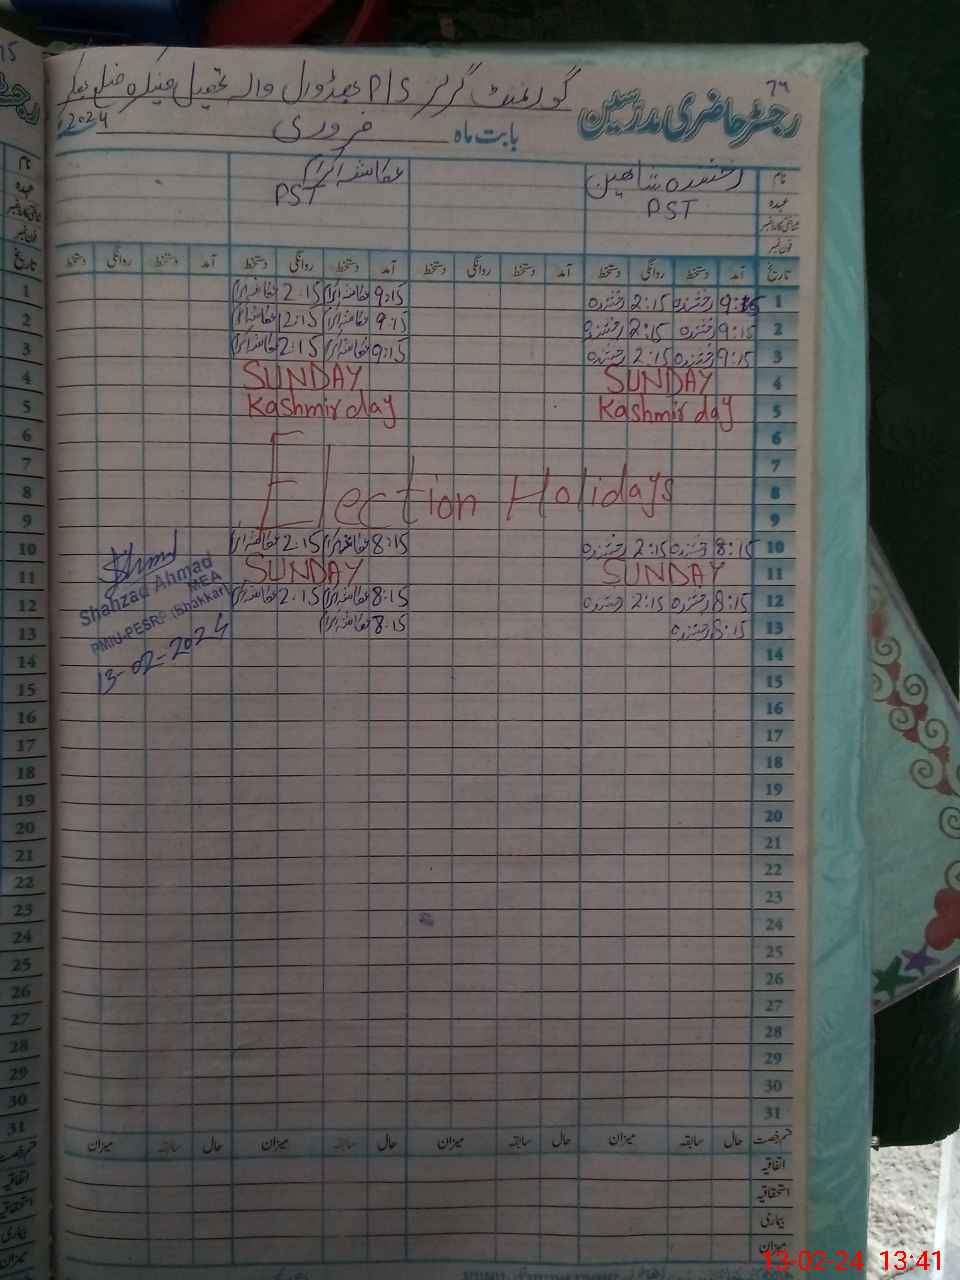 رجسٹر حاضری مدرسین
گورنمنٹ گرلز P/S
بابت ماہ فروری 2024
نام رخشندہ شاہین
عہدہ PST PST
فون نمبر
تاریخ آمد دستخط روانگی دستخط آمد دستخط روانگی دستخط آمد دستخط روانگی دستخط آمد دستخط روانگی دستخط
1 9:15 رخشندہ 2:15 رخشندہ 9:15 2:15
2 9:15 رخشندہ 2:15 رخشندہ 9:15 2:15
3 9:15 رخشندہ 2:15 رخشندہ 9:15 2:15
4 SUNDAY SUNDAY
5 Kashmir day Kashmir day
6
7
8 Election Holidays
9
10 8:15 رخشندہ 2:15 رخشندہ 8:15 2:15
11 SUNDAY SUNDAY
12 8:15 رخشندہ 2:15 رخشندہ 8:15 2:15
13 8:15 رخشندہ 8:15
Shahzad Ahmad
MEA
PMIU-PESRP (Bhakkar)
13-02-2024
14
15
16
17
18
19
20
21
22
23
24
25
26
27
28
29
30
31
قسم رخصت حال سابقہ میزان حال سابقہ میزان حال سابقہ میزان حال سابقہ میزان
اتفاقیہ
استحقاقیہ
بیماری
میزان
13-02-24 13:41